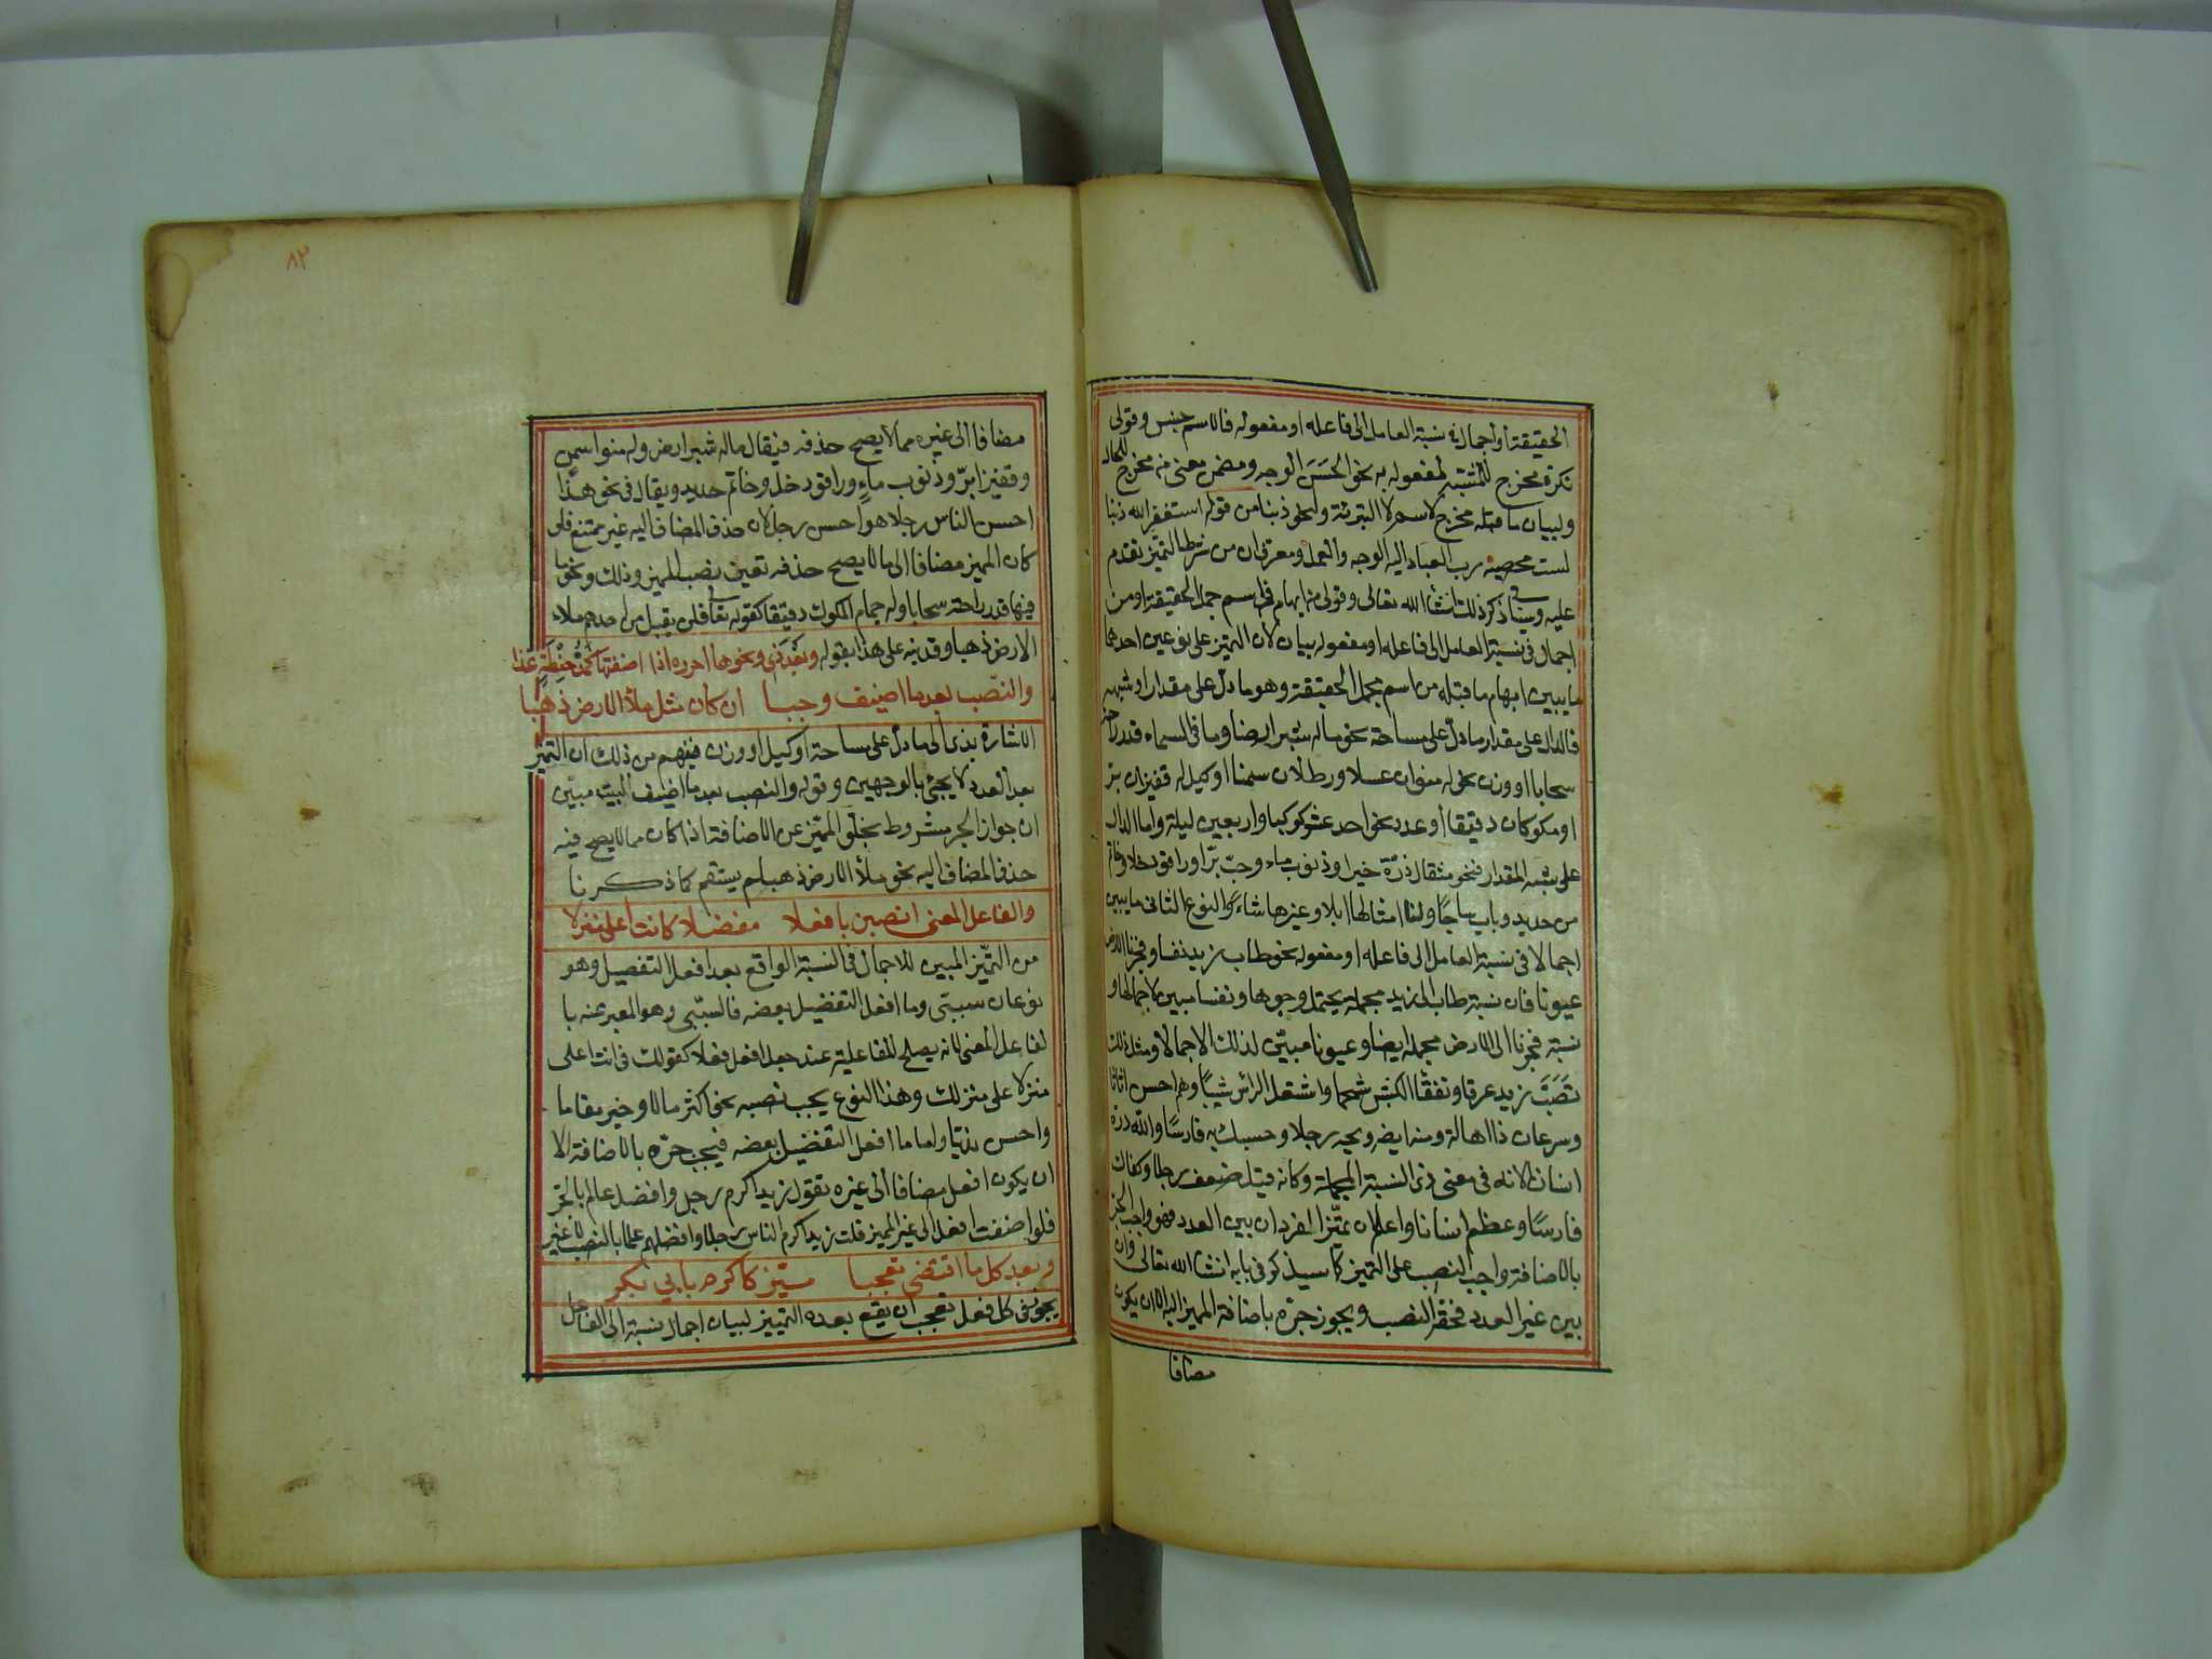 الحقيقة او اجمال في نسبة العامل الى فاعله او مفعوله فالاسم جنس وقولى
نكرة مخرج للمشبه لمفعوله به نحو الحَسَن الوجه ومضمن معنى من مخرج للحال
ولبيان ما قبله مخرج لاسم لا التبرئة ولنحو ذنبا من قوله استغفر الله ذنبا
لست محصيه رب العباد اليه الوجه والعمل ومعرف ان من شرط التميز تقدم
عليه وسيأتى ذكر ذلك انشا الله تعالى وقولى من ابهام فى اسم مجمل الحقيقة او من
اجمال فى نسبة العامل الى فاعله او مفعوله بيان لان التميز على نوعين احدهما
ما يبين ابهام ما قبله من اسم مجمل الحقيقة وهو ما دل على مقدار او شبهه
فالدال على مقدار ما دل على مساحة نحو ماله شبر ارضا وما فى السماء قدر راحة
سحابا او وزن نحو له منوان عسلا ورطلان سمنا او كيل له قفيزان بر
او مكوكان دقيقا او عدد نحو احد عشر كوكبا واربعين ليلة واما الدال
على شبه المقدار فنحو مثقال ذرّة خيرا وذنوب ماء وحبّ برّا وراقود خلا وخاتم
من حديد وباب ساجًا ولنا امثالها ابلا وغيرها شاءً والنوع الثانى ما يبين
اجمالا فى نسبة العامل الى فاعله او مفعوله نحو طاب زيد نفسا وفجرنا الارض
عيونا فان نسبة طاب الى زيد مجملة يحتمل وجوها ونفسا مبين لاجمالها و
نسبة فجرنا الى الارض مجملة ايضا وعيونا مبيّن لذلك الاجمالا ومثل ذلك
تصَبَّبَ زيد عرقا وتفقّأ الكبش شحما واشتعل الرأس شيبًا وهم احسن اثاثا
وسرعان ذا اهالة ومنه ايضه ويحه رجلا وحسبك به فارسًا ولله درّه
انسانا لانه فى معنى ذى النسبة المجملة وكانه قيل ضعف رجلا وكفاك
فارسًا وعظم انسانا واعلم ان مميّز المفرد ان بين العدد فهو واجب الجر
بالاضافة او واجب النصب على التميز كما سيذكر فى بابه انشا الله تعالى وان
بين غير العدد فحقه النصب ويجوز جرّه باضافة المميز اليه الا ان يكون
مضافا
٨٢
مضافا الى غيره مما لا يصح حذفه فيقال ماله شبر ارض وله منوا سمن
وقفيزا برّ وذنوب ماءٍ وراقود خل وخاتم حديد ويقال فى نحو هذا
احسن الناس رجلا هو احسن رجل لان حذف المضاف اليه غير ممتنع فلو
كان المميز مضافا الى ما لا يصح حذفه تعين نصب المميز وذلك ونحو ما
فيها قدر راحة سحابا وله جمام المكوك دقيقا كقوله تعالى فلن يقبل من احدهم ملاء
الارض ذهبا وقد نبه على هذا بقوله وبَعْدَ ذى ونحوها اجرره اذا اضفتها كمُدّ حِنْطَةٍ غذا
والنّصب بعد ما اضيف وجبا ان كان مثل ملأ الارض ذهبا
الاشارة بذى الى ما دل على مساحة او كيل او وزن فيفهم من ذلك ان التميز
بعد العدد لا يجئ بالوجهين وقوله والنصب بعد ما اضيف البيت مبيّن
ان جواز الجر مشروط بخلوّ المميّز عن الاضافة اذا كان مما لا يصح فيه
حذف المضاف اليه نحو ملأ الارض ذهبا لم يستقم كما ذكرنا
والفاعل المعنى انصبن بافعلا مفضلا كانت أعلى منزلا
من التميّز المبين للاجمال فى النسبة الواقع بعد افعل التفضيل وهو
نوعان سببى وما افعل التفضيل بعضه فالسببى وهو المعبر عنه با
لفاعل المعنى لانه يصلح للفاعلية عند جعل افعل فعلا كقولك فى انت اعلى
منزلا علا منزلك وهذا النوع يجب نصبه نحو اكثر مالا وخير مقاما
واحسن نديّا واما ما افعل التفضيل بعضه فيجب جرّه بالاضافة الا
ان يكون افعل مضافا الى غيره تقول زيد اكرم رجل وافضل عالم بالجرّ
فلو اضفت افعل الى غير المميز قلت زيد اكرم الناس رجلا وافضلهم علما بالنصب لا غير
وبعد كل ما اقتضى تعجبا ميّز كاكرم بابى بكر
يجوز فى كل فعل تعجب ان يقع بعده التمييز لبيان اجمال نسبة الى الفاعل